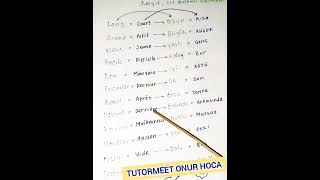 Long × Court → Uzun × Kısa
Grand × Petit → Büyük × Küçük
Vieux × Jeune → Yaşlı × Genç
Facile × Difficile → Kolay ×
Bon × Mauvais → İyi × Kötü
Premier × Dernier → İlk × Son
Avant × Après → Önce × Sonra
Devant × Derrière → Önünde × Arkasında
× Malheureux → Mutlu × Mutsuz
× Ancien → × Eski
× Vide → Dolu × Boş
TUTORMEET ONUR HOCA